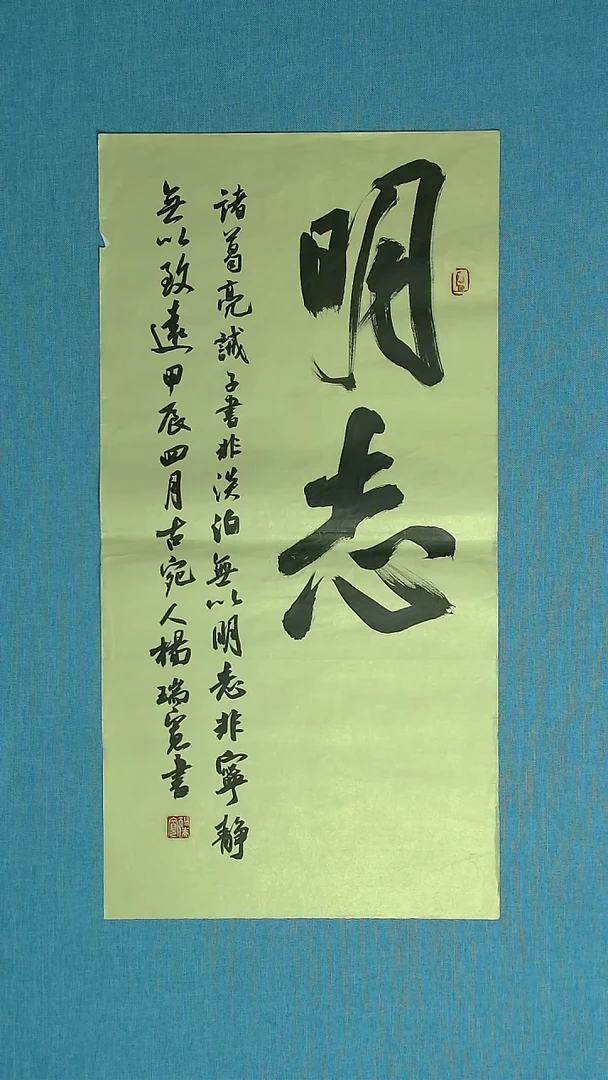 明志
諸葛亮誡子書非淡泊無以明志非寧静
無以致遠甲辰四月古宛人楊瑞寬書